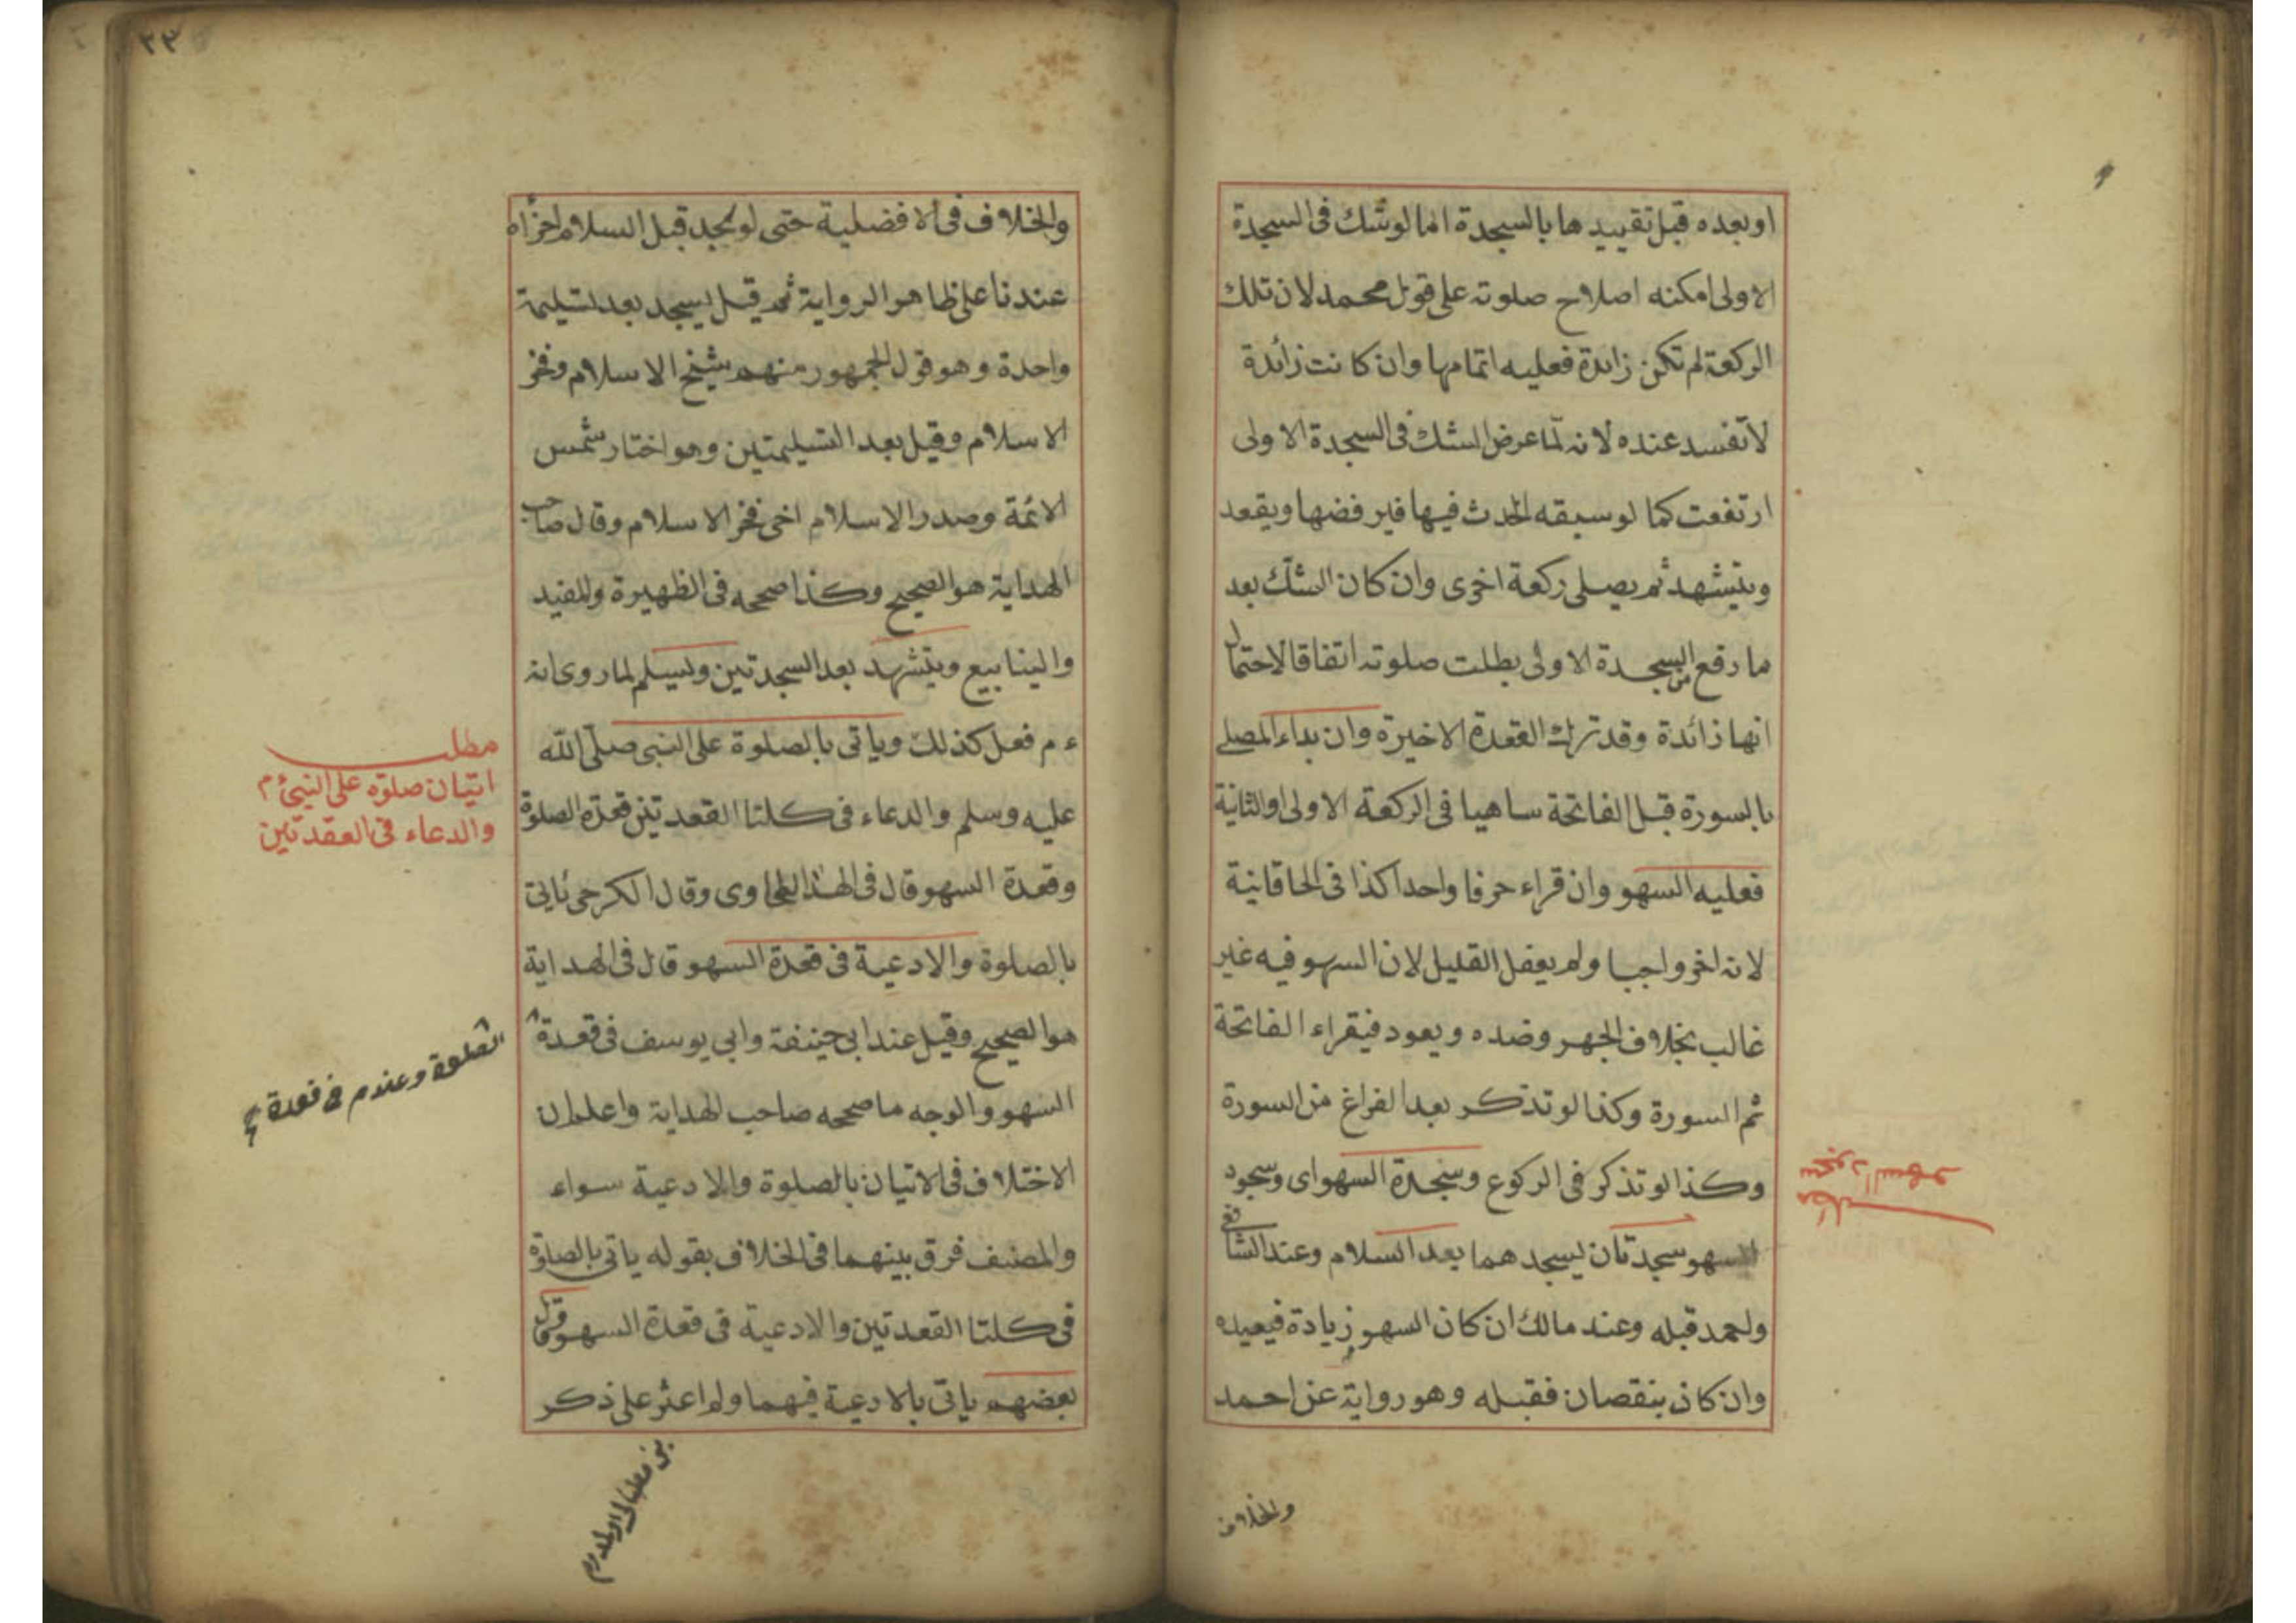 او بعده قبل تقييدها بالسجدة اما لو شك فى السجدة
الاولى امكنه اصلاح صلوته على قول محمد لان تلك
الركعة لم تكن زائدة فعليه اتمامها وان كانت زائدة
لا تفسد عنده لانه لما عرض الشك فى السجدة الاولى
ارتفعت كما لو سبقه الحدث فيها فيرفضها ويقعد
ويتشهد ثم يصلى ركعة اخرى وان كان الشك بعد
ما رفع من السجدة الاولى بطلت صلوته اتفاقا لاحتمال
انها زائدة وقد ترك القعدة الاخيرة وان بداء المصلى
بالسورة قبل الفاتحة ساهيا فى الركعة الاولى او الثانية
فعليه السهو وان قراء حرفا واحدا كذا فى الخاقانية
لانه اخر واجبا ولم يعفل القليل لان السهو فيه غير
غالب بخلاف الجهر وضده ويعود فيقراء الفاتحة
ثم السورة وكذا لو تذكر بعد الفراغ من السورة
وكذا لو تذكر فى الركوع وسجدة السهو اى وسجود
السهو سجدتان يسجدهما بعد السلام وعند الشافعى
واحمد قبله وعند مالك ان كان السهو زيادة فبعيده
وان كان بنقصان فقبله وهو رواية عن احمد
مطلب
سجود السهو
والخلاف
٣٣
والخلاف فى الافضلية حتى لو سجد قبل السلام اجزاه
عندنا على ظاهر الرواية ثم قيل يسجد بعد تسليمة
واحدة وهو قول الجمهور منهم شيخ الاسلام وفخر
الاسلام وقيل بعد التسليمتين وهو اختار شمس
الائمة وصدر الاسلام اخى فخر الاسلام وقال صاحب
الهداية هو الصحيح وكذا صححه فى الظهيرة والمفيد
والينابيع ويتشهد بعد السجدتين ويسلم لما روى انه
ءم فعل كذلك وياتى بالصلوة على النبى صلى الله
عليه وسلم والدعاء فى كلتا القعدتين قعدة الصلوة
وقعدة السهو قال فى الهذا الطحاوى وقال الكرخى ياتى
بالصلوة والادعية فى قعدة السهو قال فى الهداية
هو الصحيح وقيل عند ابى حنيفة وابى يوسف فى قعدة
السهو والوجه ما صححه صاحب الهداية واعلم ان
الاختلاف فى الاتيان بالصلوة والادعية سواء
والمصنف فرق بينهما فى الخلاف بقوله ياتى بالصلوة
فى كلتا القعدتين والادعية فى قعدة السهو وقال
بعضهم ياتى بالادعية فيهما ولم اعثر على ذكر
مطلب
اتيان صلوة على النبى ءم
والدعاء فى العقدتين
الصلوة وعندم فى قعدة